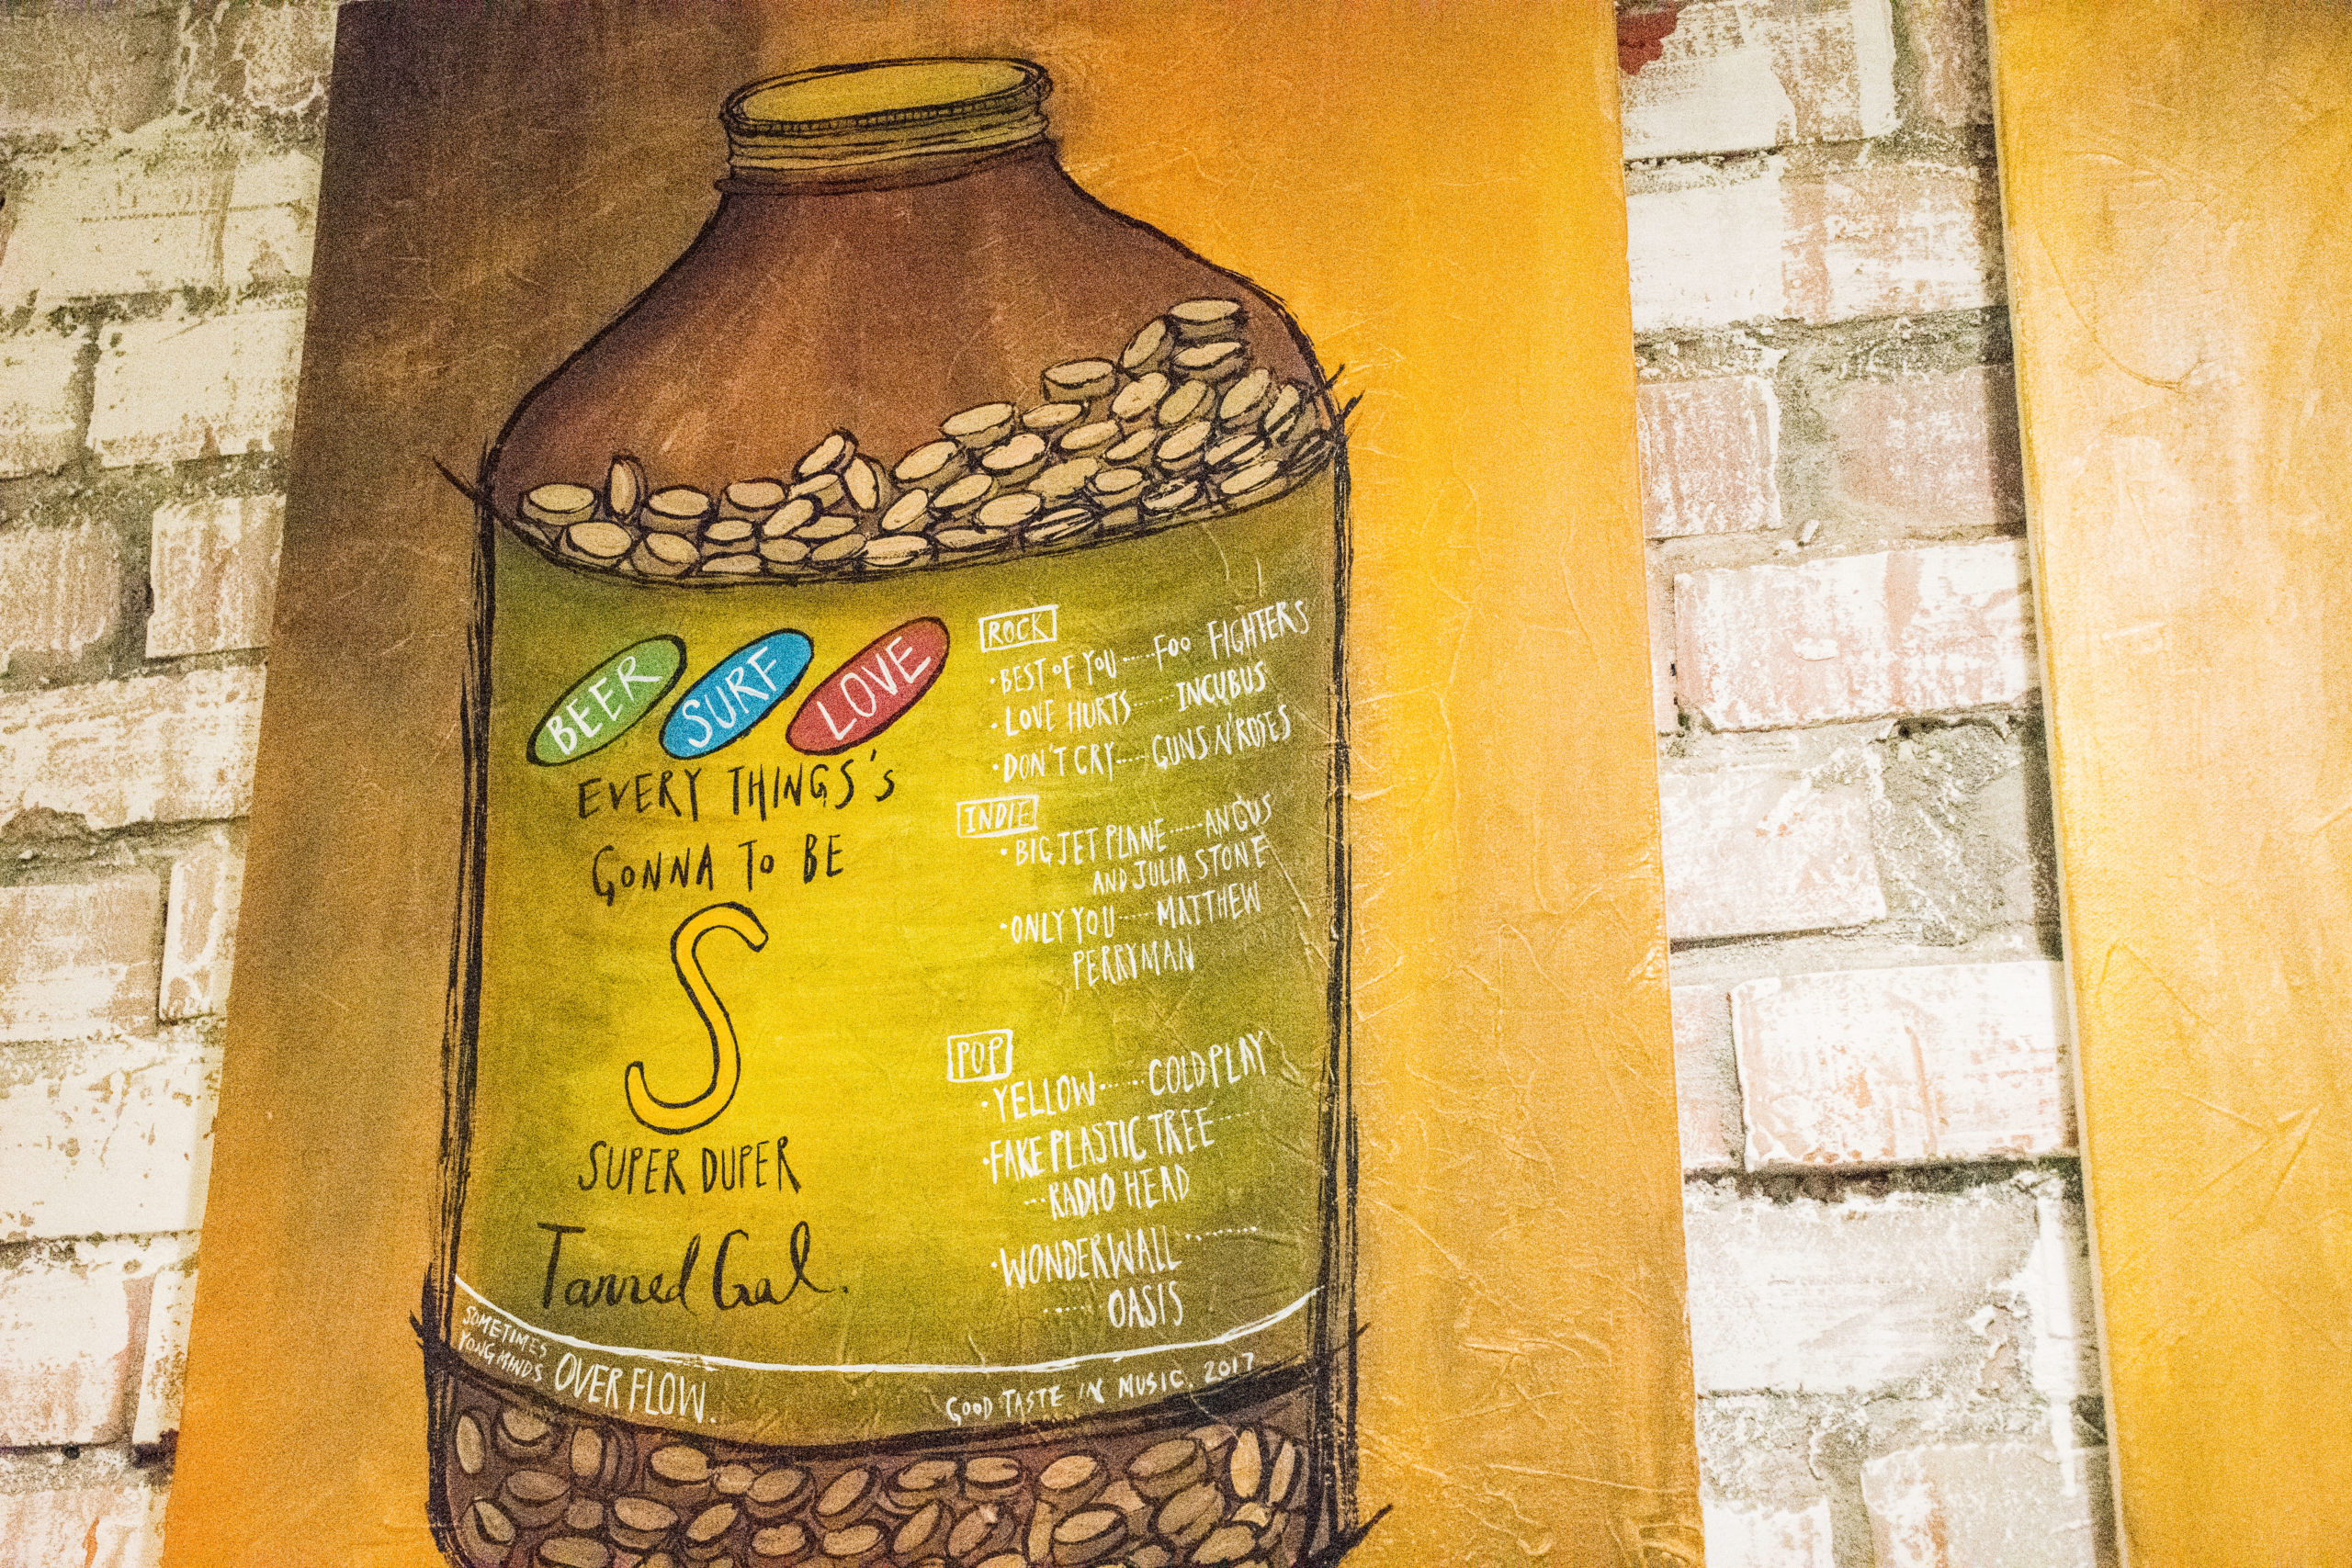 BEER SURF LOVE
EVERY THINGS's
GONNA To BE
S
SUPER DUPER
Tanned Gal.
ROCK
·BEST OF YOU ...... FOO FIGHTERS
·LOVE HURTS ...... INCUBUS
·DON'T CRY ...... GUNS N' ROSES
INDIE
·BIG JET PLANE ...... ANGUS
AND JULIA STONE
·ONLY YOU ...... MATTHEW
PERRYMAN
POP
·YELLOW ...... COLDPLAY
·FAKE PLASTIC TREE ....
... RADIO HEAD
·WONDERWALL ........
...... OASIS
SOMETIMES
YONG MINDS OVER FLOW.
GOOD TASTE IN MUSIC. 2017